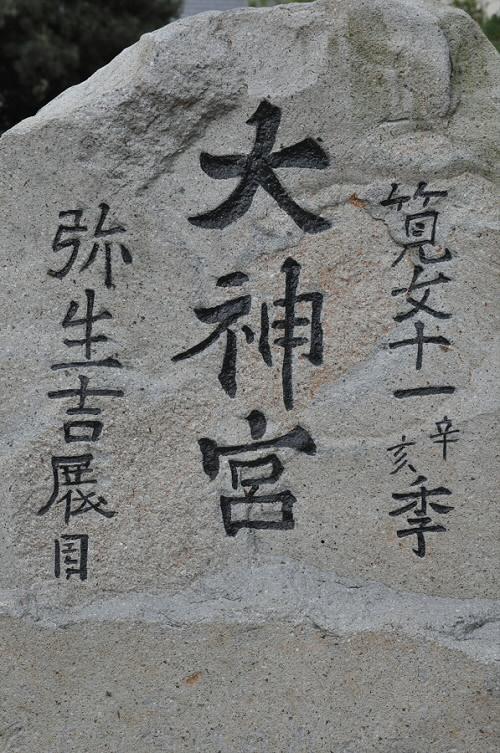 寛文十一辛亥季
大神宮
弥生吉展目